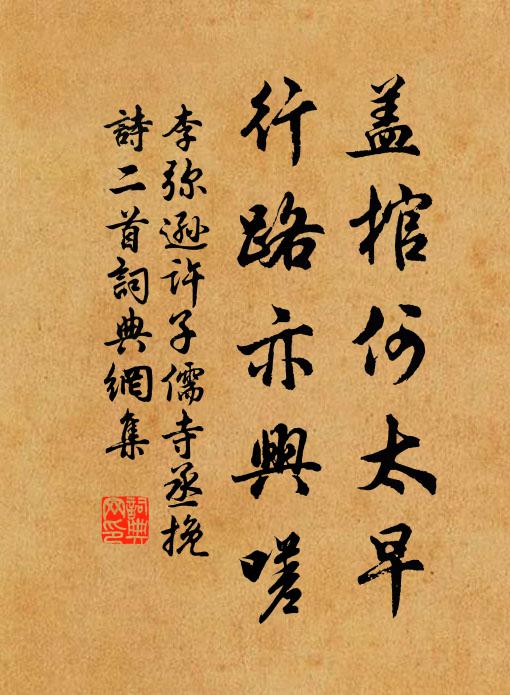 盖棺何太早
行路亦興嗟
李弥遜许子儒寺丞挽
詩二首詞典網集
詞典網印